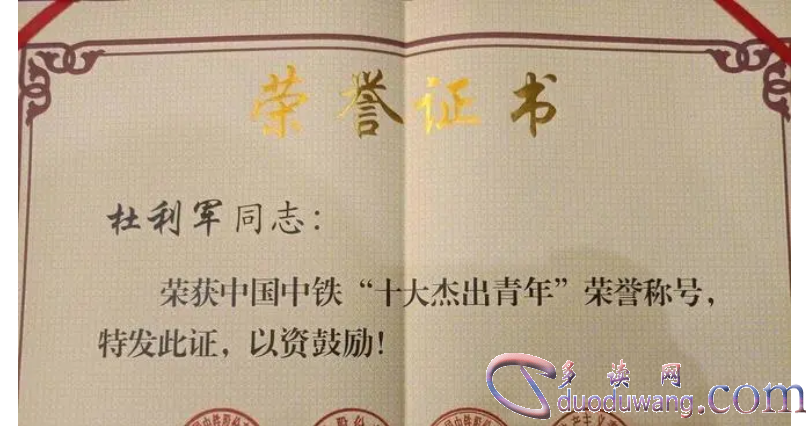 荣誉证书
杜利军同志：
荣获中国中铁“十大杰出青年”荣誉称号，
特发此证，以资鼓励！
多读网
duoduwang.com